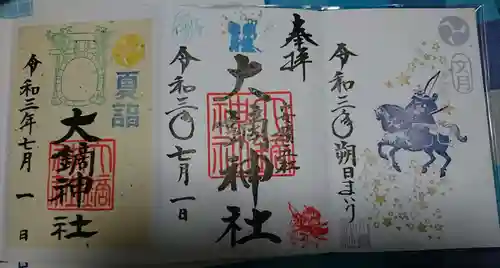 夏詣
大鏑神社
令和三年七月一日
奉拝
大鏑神社
令和三年七月一日
令和三年朔日まいり
文月